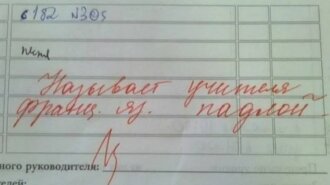 с 182 №305
Называет учителя
франц. яз. падлой
ного руководителя: